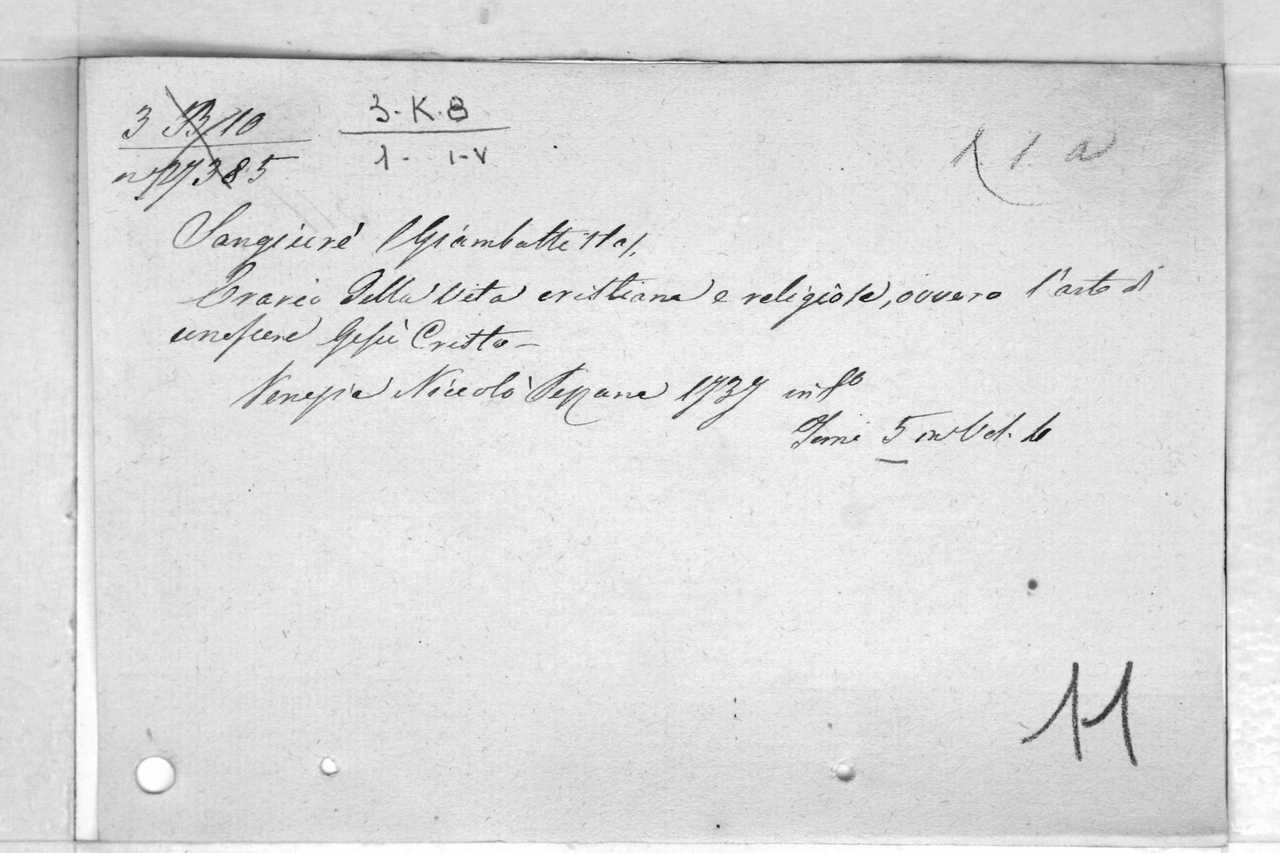 3 33/10
n 27385
3-K-8
1- I-V
1. 1. a
Sangiuré (Giambattista).
Erario della Vita cristiana e religiosa, ovvero l'arte di
conoscere Gesù Cristo-
Venezia Niccolò Pezzana 1737 in fo
Tomi 5 in Vol. 10
11